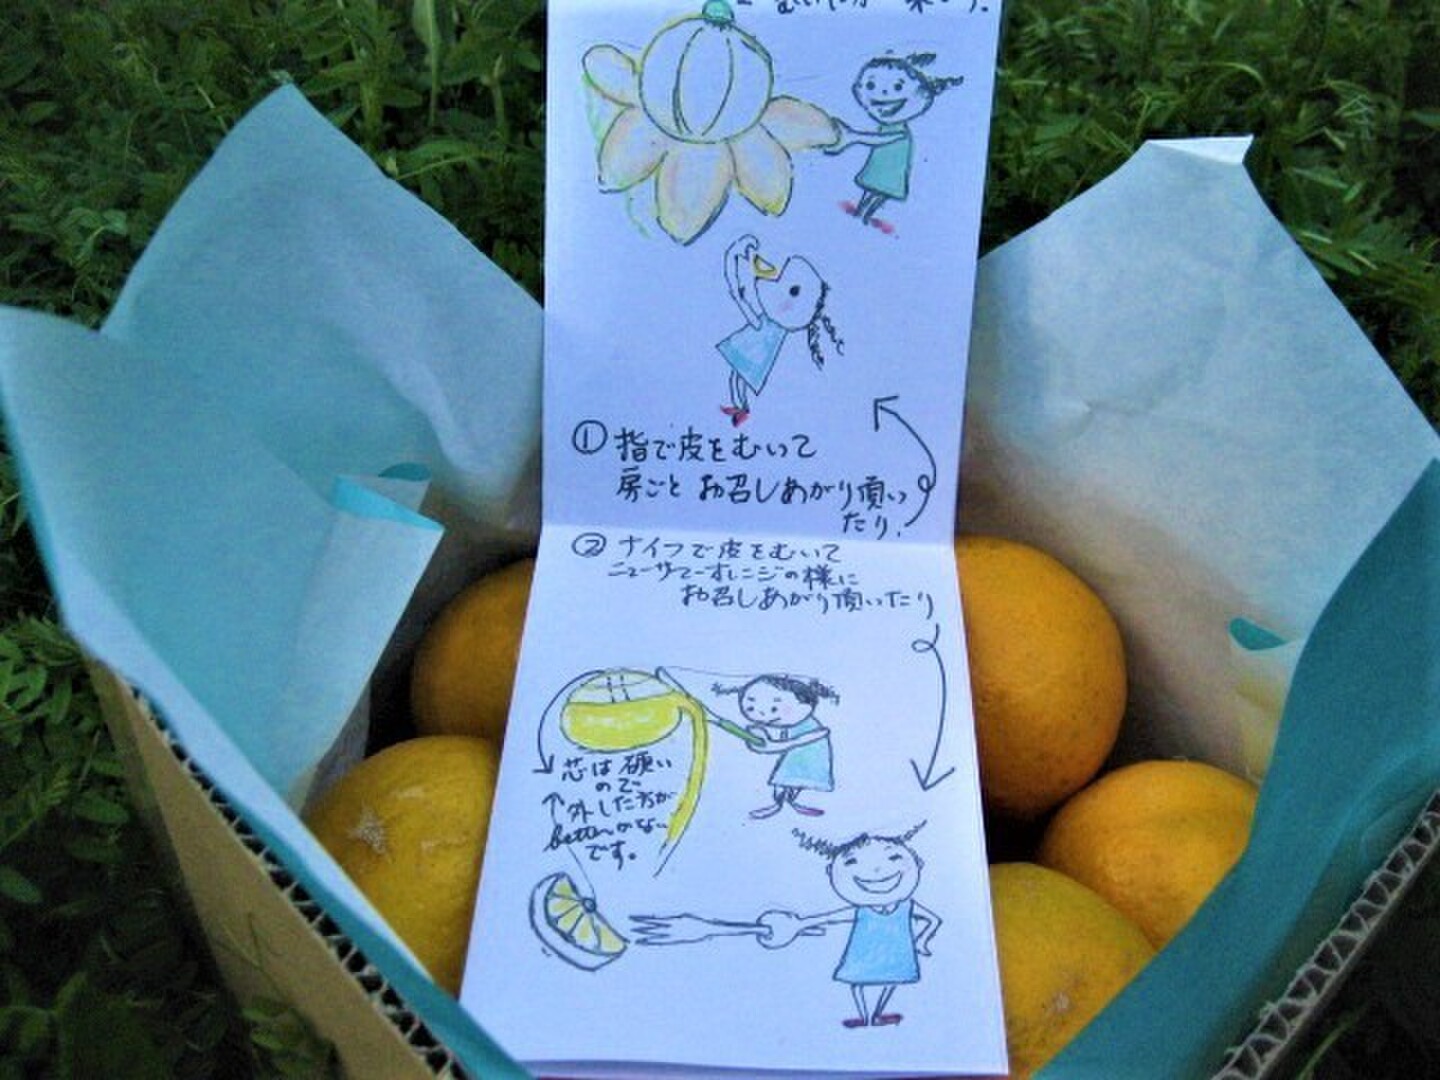 ①指で皮をむいて
房ごとお召しあがり頂い
たり.
②ナイフで皮をむいて
ニューサマーオレンジの様に
お召しあがり頂いたり
芯は硬い
ので
外した方が
betterかない
です。